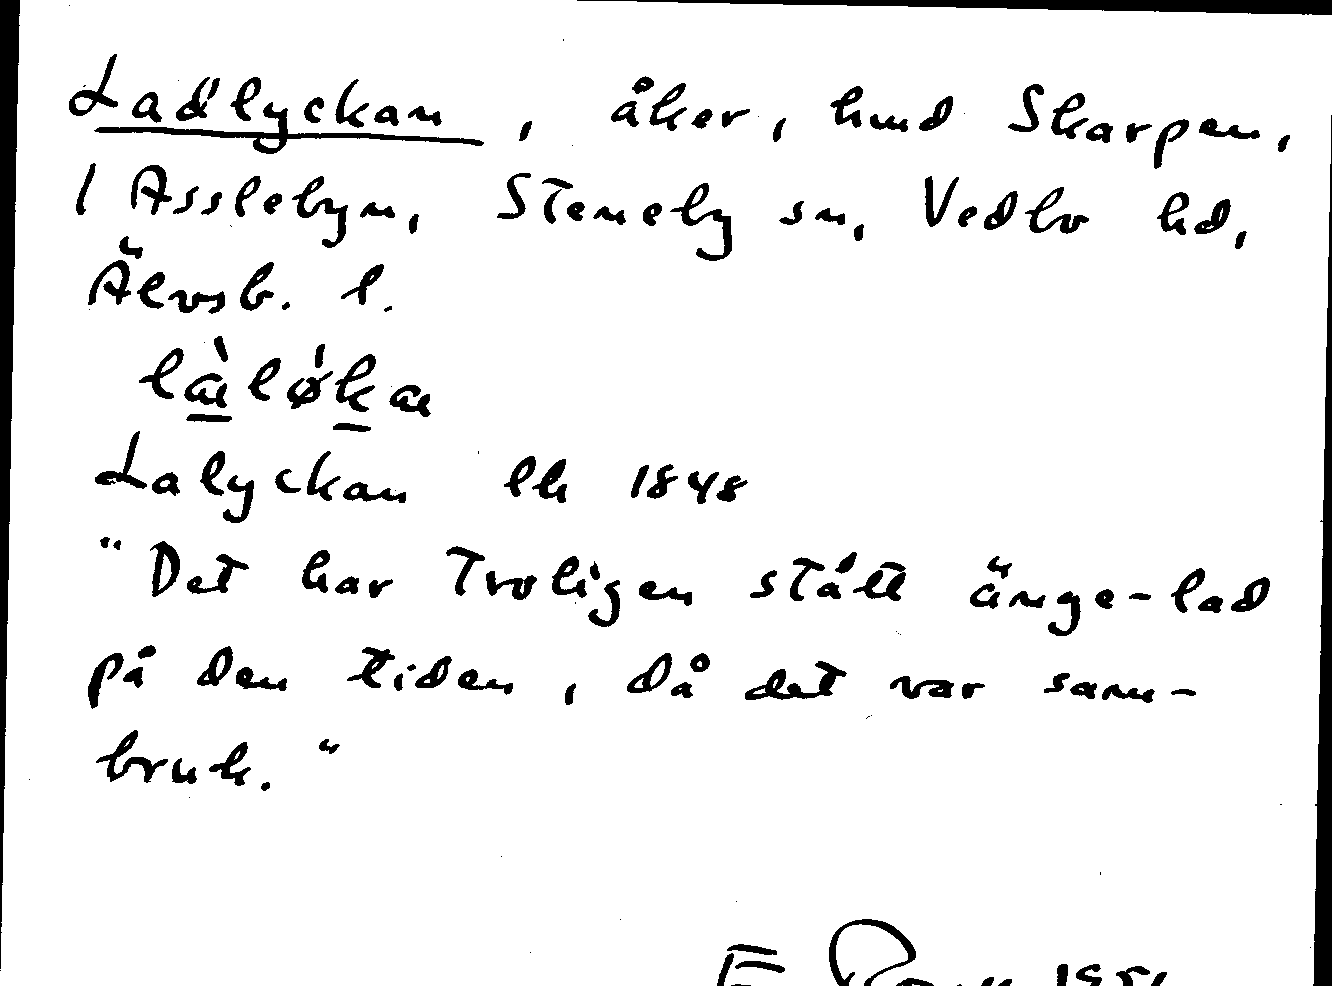 Ladlyckan, åker, hmd Skarpen,
1 Asslebyn, Steneby sn, Vedbo hd,
Älvsb. l.
Lalyckan lk 1848
"Det har troligen stått änge-lad
på den tiden, då det var sam-
bruk."
E.